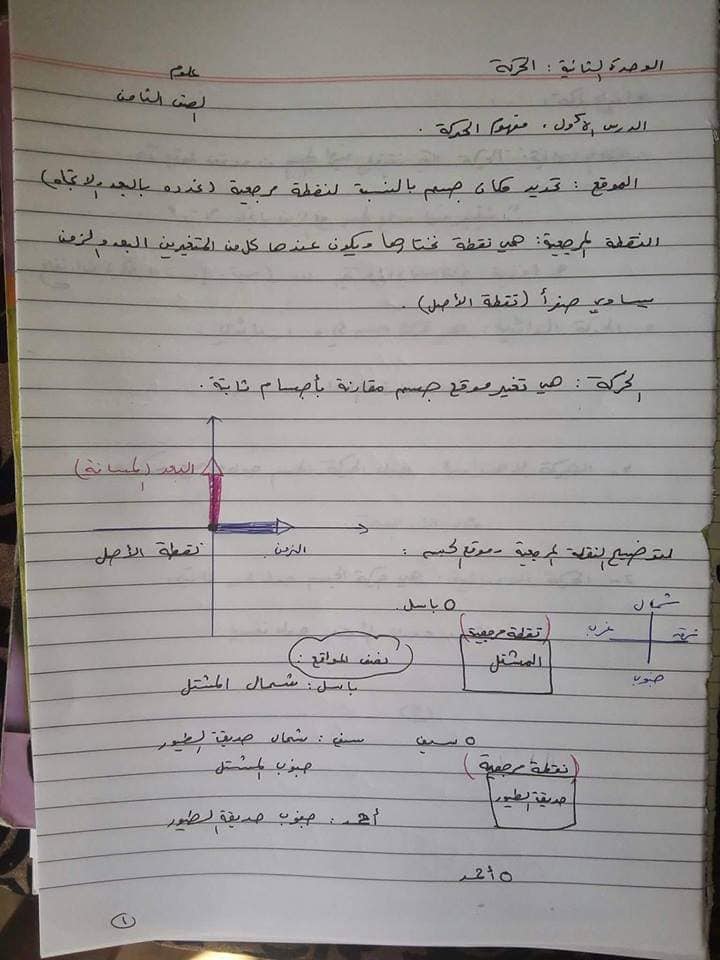 الوحدة الثانية : الحركة
علوم
الصف الثامن
الدرس الأول . مفهوم الحركة .
الموقع : تحديد مكان جسم بالنسبة لنقطة مرجعية (نحدده بالبعد والاتجاه)
النقطة المرجعية : هي نقطة نختارها ويكون عندها كل من المتغيرين البعد والزمن
يساوي صفراً (نقطة الأصل) .
الحركة : هي تغير موقع جسم مقارنة بأجسام ثابتة .
البعد (المسافة)
الزمن
نقطة الأصل
لتوضيح النقطة المرجعية وموقع الجسم :
شمال
غرب
شرق
جنوب
باسل .
(نقطة مرجعية)
المشتل
نصف المواقع :
باسل : شمال المشتل
سيف
سيف : شمال حديقة الطيور
جنوب المشتل
(نقطة مرجعية)
حديقة الطيور
أحمد : جنوب حديقة الطيور
أحمد
١